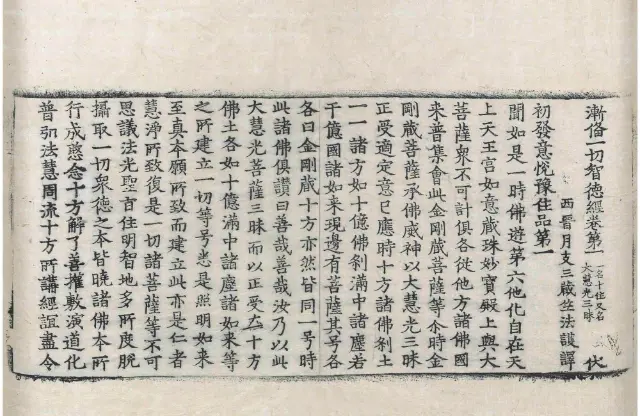 漸備一切智德經卷第一 一名十住又名大慧光三昧 伏
西晉月支三藏竺法護譯
初發意悅豫住品第一
聞如是一時佛遊第六他化自在天
上天王宮如意藏珠妙寶殿上與大
菩薩眾不可計俱各從他方諸佛國
來普集會此金剛藏菩薩等尒時金
剛藏菩薩承佛威神以大慧光三昧
正受適定意已應時十方諸佛刹土
一一諸方如十億佛刹滿中諸塵若
干億國諸如來現邊有菩薩其号各
各曰金剛藏十方亦然皆同一号時
此諸佛俱讃曰善哉善哉汝乃以此
大慧光菩薩三昧而以正受及十方
佛土各如十億滿中諸塵諸如來等
之所建立一切等号悉是照明如來
至真本願所致而建立此亦是仁者
慧淨所致復是一切諸菩薩等不可
思議法光聖旨住明智地多所度脫
攝取一切衆德之本皆曉諸佛本所
行成愍念十方解了善權敷演道化
普弘法慧周流十方所講經誼盡令